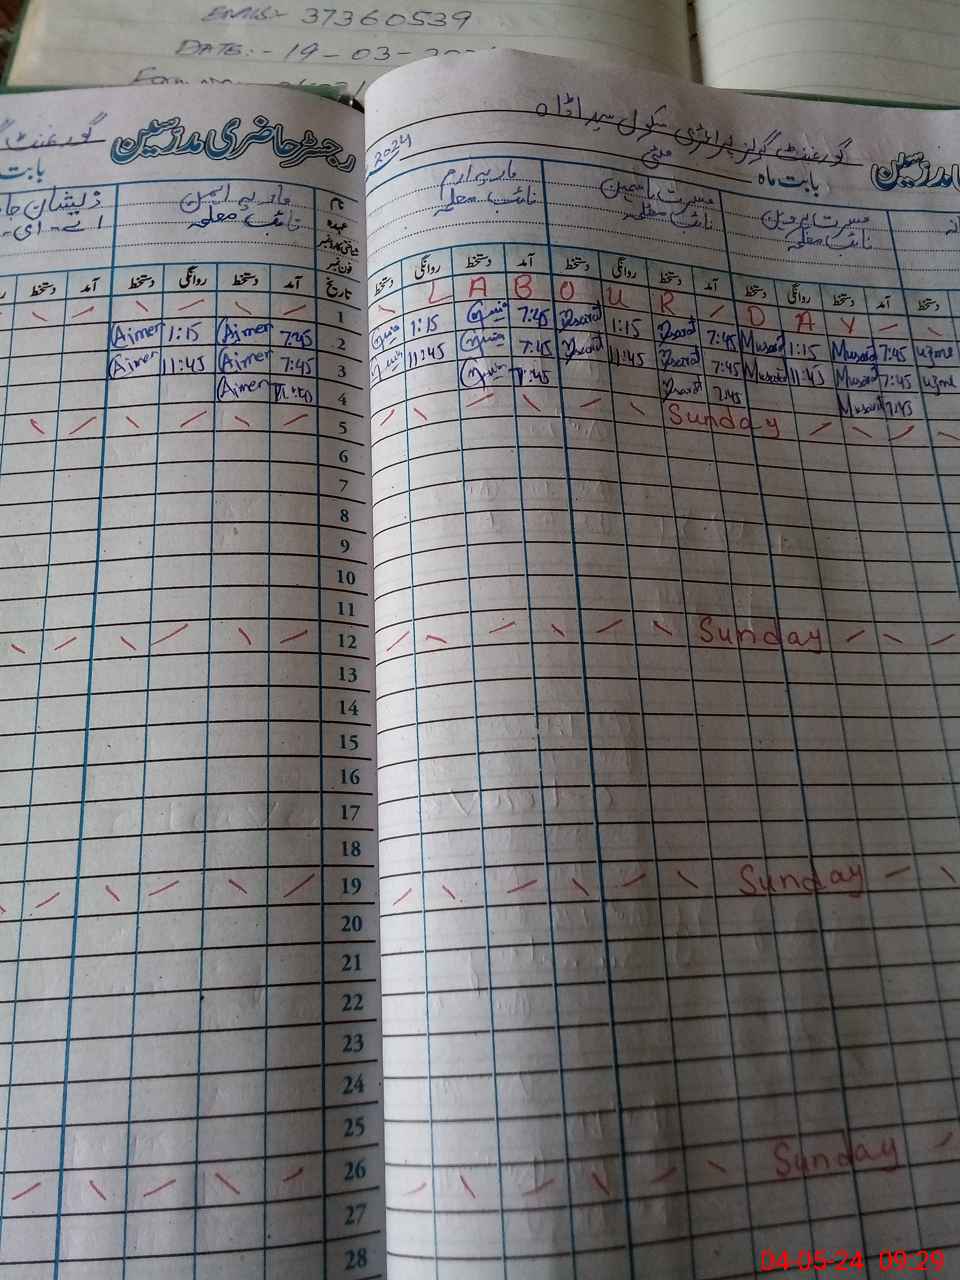 EMIS:- 37360539
DATE:- 19-03-
رجسٹر حاضری مدرسین
گورنمنٹ
بابت
گورنمنٹ گرلز پرائمری سکول
2024
بابت ماہ مئی
نام
عہدہ
فون نمبر
تاریخ
ذیشان
ماریہ ایمن
نائب معلمہ
ماریہ ارم
نائب معلمہ
مسرت یاسمین
نائب معلمہ
مسرت پروین
نائب معلمہ
آمد دستخط روانگی دستخط آمد دستخط
دستخط روانگی دستخط آمد دستخط روانگی دستخط آمد دستخط روانگی دستخط آمد دستخط
1 LABOUR DAY
Aimen 1:15 Aimen 7:45 2 1:15 7:45 1:15 7:45 Musarat 1:15 Musarat 7:45 uzme
Aimen 11:45 Aimen 7:45 3 11:45 7:45 11:45 7:45 Musarat 11:45 Musarat 7:45 uzme
Aimen 7:45 4 7:45 7:45 Musarat 7:45
5 Sunday
6
7
8
9
10
11
12 Sunday
13
14
15
16
17
18
19 Sunday
20
21
22
23
24
25
26 Sunday
27
28
04-05-24 09:29